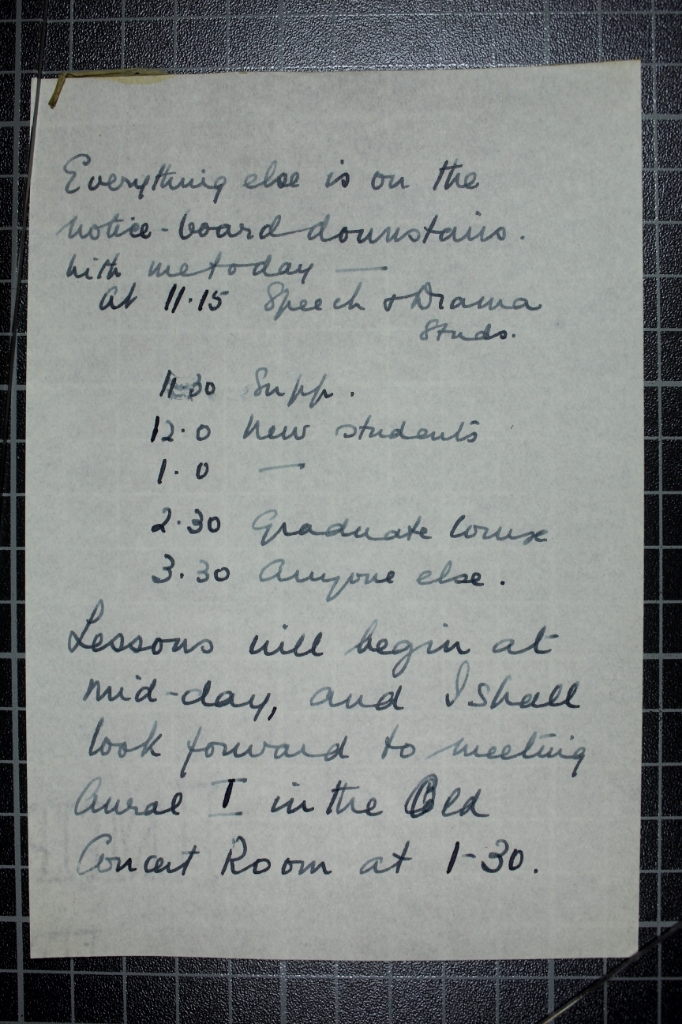 Everything else is on the
notice-board downstairs.
With me today —
At 11.15 Speech & Drama
Studs.
11.30 Supp.
12.0 New students
1.0 —
2.30 Graduate Course
3.30 Anyone else.
Lessons will begin at
mid-day, and I shall
look forward to meeting
Aural I in the Old
Concert Room at 1-30.